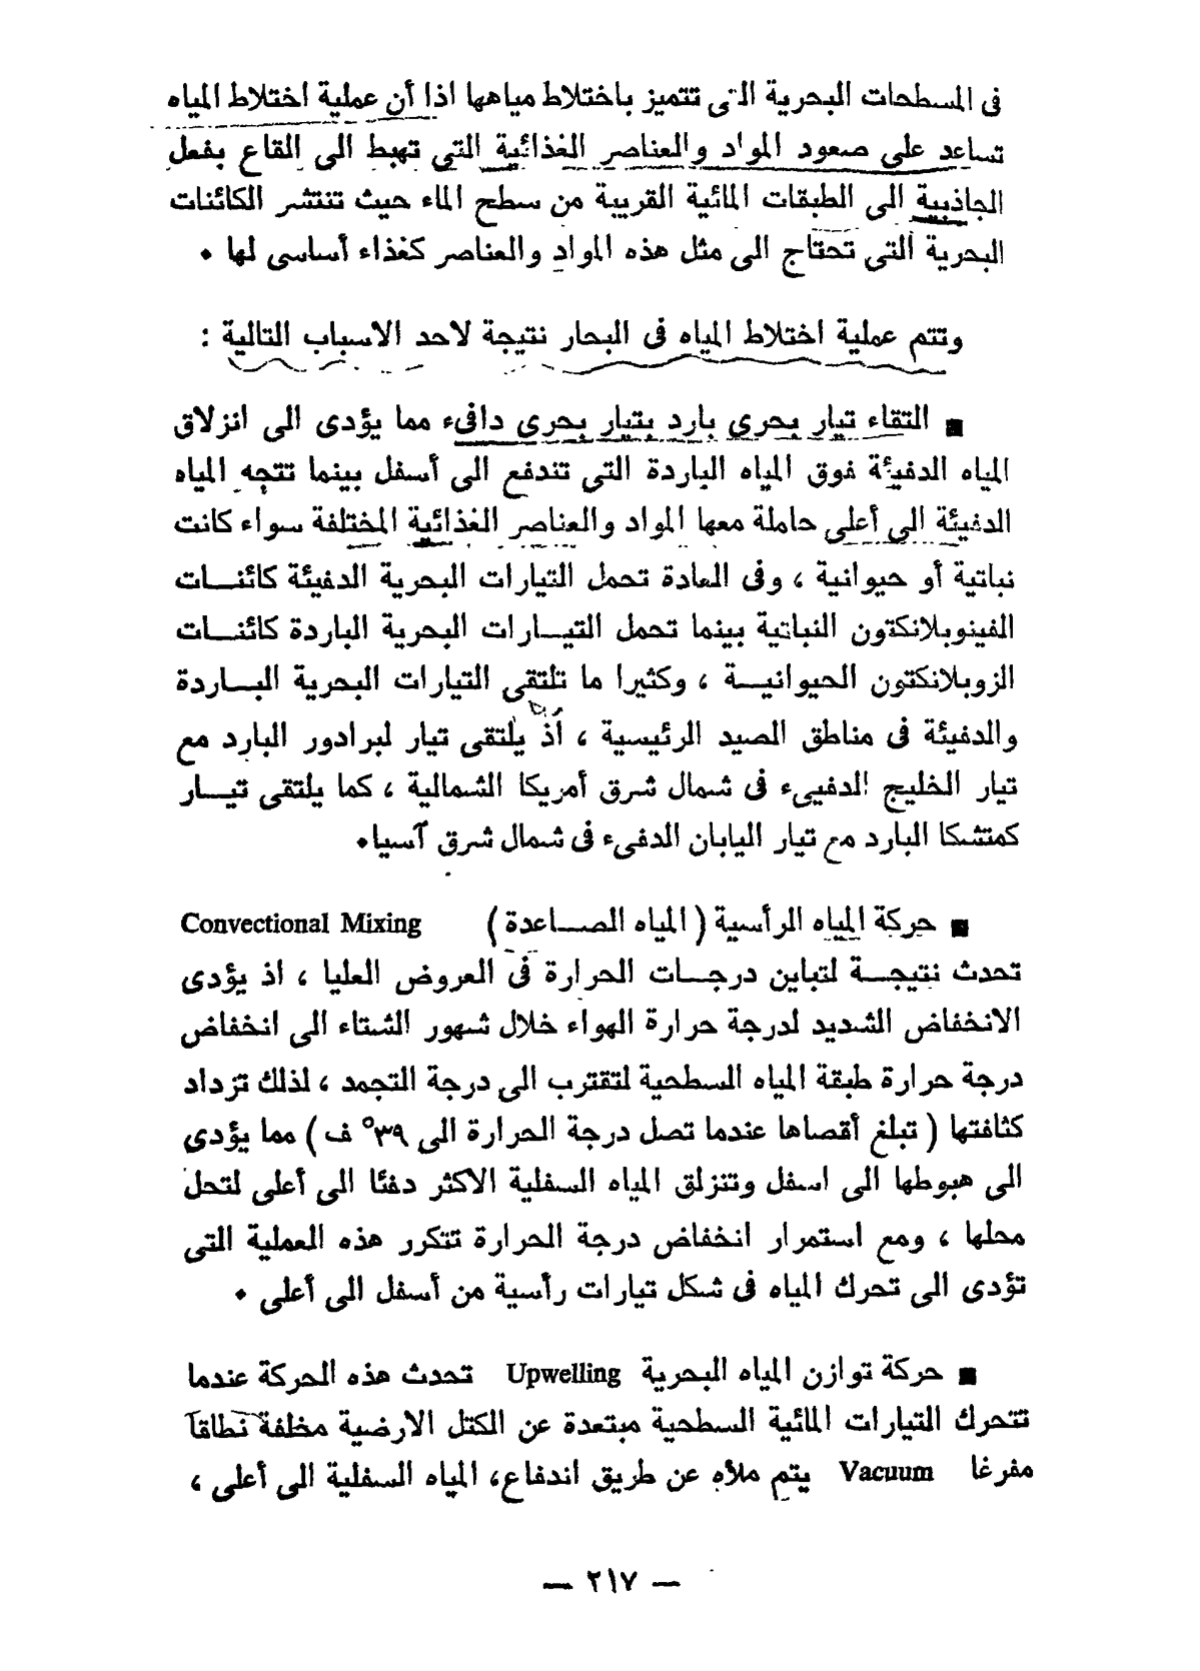 فى المسطحات البحرية التى تتميز باختلاط مياهها اذا أن عملية اختلاط المياه
تساعد على صعود المواد والعناصر الغذائية التى تهبط الى القاع بفعل
الجاذبية الى الطبقات المائية القريبة من سطح الماء حيث تنتشر الكائنات
البحرية التى تحتاج الى مثل هذه المواد والعناصر كغذاء أساسى لها •
وتتم عملية اختلاط المياه فى البحار نتيجة لاحد الاسباب التالية :
■ التقاء تيار بحرى بارد بتيار بحرى دافىء مما يؤدى الى انزلاق
المياه الدفيئة فوق المياه الباردة التى تندفع الى أسفل بينما تتجه المياه
الدفيئة الى أعلى حاملة معها المواد والعناصر الغذائية المختلفة سواء كانت
نباتية أو حيوانية ، وفى العادة تحمل التيارات البحرية الدفيئة كائنــات
الفينوبلانكتون النباتية بينما تحمل التيــارات البحرية الباردة كائنــات
الزوبلانكتون الحيوانيــة ، وكثيرا ما تلتقى التيارات البحرية البــاردة
والدفيئة فى مناطق الصيد الرئيسية ، أذ يلتقى تيار لبرادور البارد مع
تيار الخليج الدفيىء فى شمال شرق أمريكا الشمالية ، كما يلتقى تيــار
كمتشكا البارد مع تيار اليابان الدفىء فى شمال شرق آسيا•
■ حركة المياه الرأسية ( المياه الصــاعدة ) Convectional Mixing
تحدث نتيجــة لتباين درجــات الحرارة فى العروض العليا ، اذ يؤدى
الانخفاض الشديد لدرجة حرارة الهواء خلال شهور الشتاء الى انخفاض
درجة حرارة طبقة المياه السطحية لتقترب الى درجة التجمد ، لذلك تزداد
كثافتها ( تبلغ أقصاها عندما تصل درجة الحرارة الى ٣٩° ف ) مما يؤدى
الى هبوطها الى اسفل وتنزلق المياه السفلية الاكثر دفئا الى أعلى لتحل
محلها ، ومع استمرار انخفاض درجة الحرارة تتكرر هذه العملية التى
تؤدى الى تحرك المياه فى شكل تيارات رأسية من أسفل الى أعلى •
■ حركة توازن المياه البحرية Upwelling تحدث هذه الحركة عندما
تتحرك التيارات المائية السطحية مبتعدة عن الكتل الارضية مخلفة نطاقا
مفرغا Vacuum يتم ملأه عن طريق اندفاع، المياه السفلية الى أعلى ،
— ٢١٧ —